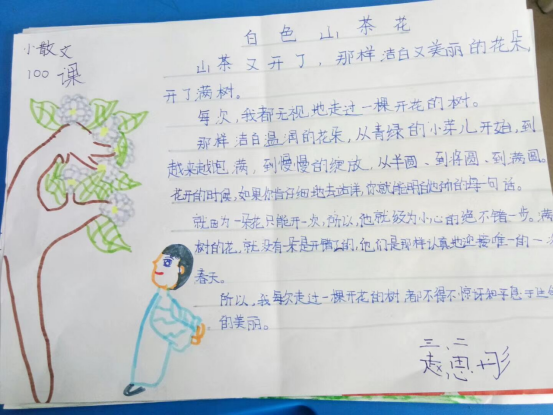 小散文
100课
白色山茶花
山茶又开了，那样洁白又美丽的花朵，
开了满树。
每次，我都无视地走过一棵开花的树。
那样洁白温润的花朵，从青绿的小芽儿开始，到
越来越饱满，到慢慢的绽放，从半圆、到将圆、到满圆。
花开的时候，如果你肯仔细地去
就因为一朵花只能开一次，所以，他就极为小心的绝不错一步。满
树的花，就没有一朵是开错了的，他们是那样认真地迎接唯一的一次
春天。
所以，我每次走过一棵开花的树，都不得不惊讶和
的美丽。
三、二
赵思彤